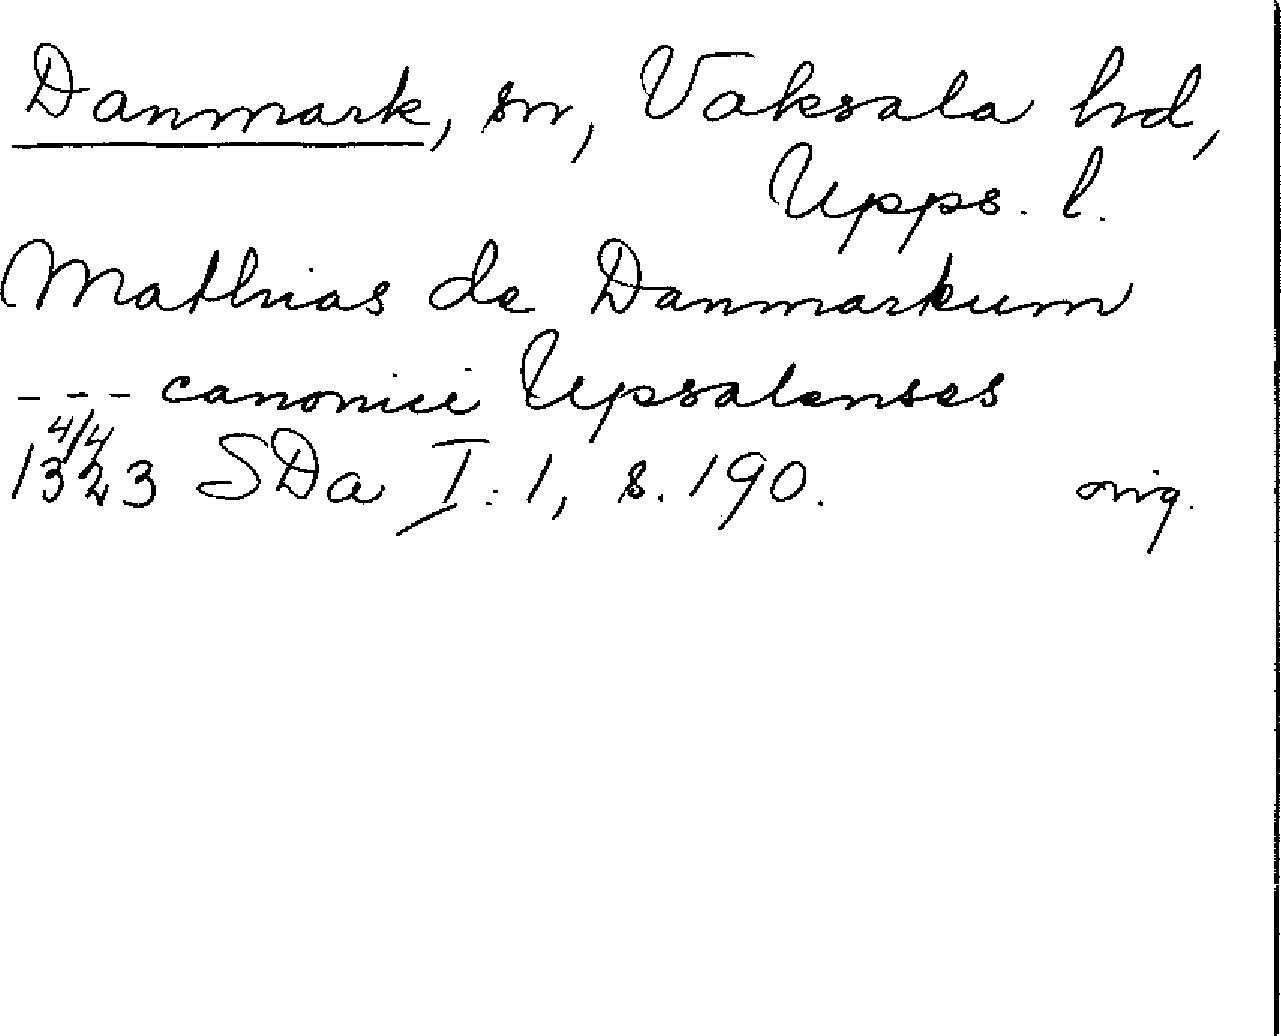 Danmark, sn, Vaksala hd,
Upps. l.
Mathias de Danmarkum
--- canonici Upsalenses
4/4
1323 SDa I:1, s. 190. orig.